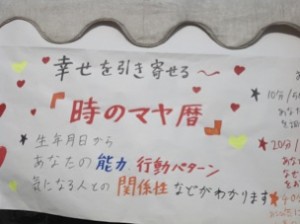 幸せを引き寄せる～
『時のマヤ暦』
★生年月日から
あなたの能力、行動パターン
気になる人との関係性などがわかります
★10分/
あな
★20分/
あな
なぜ
をあ